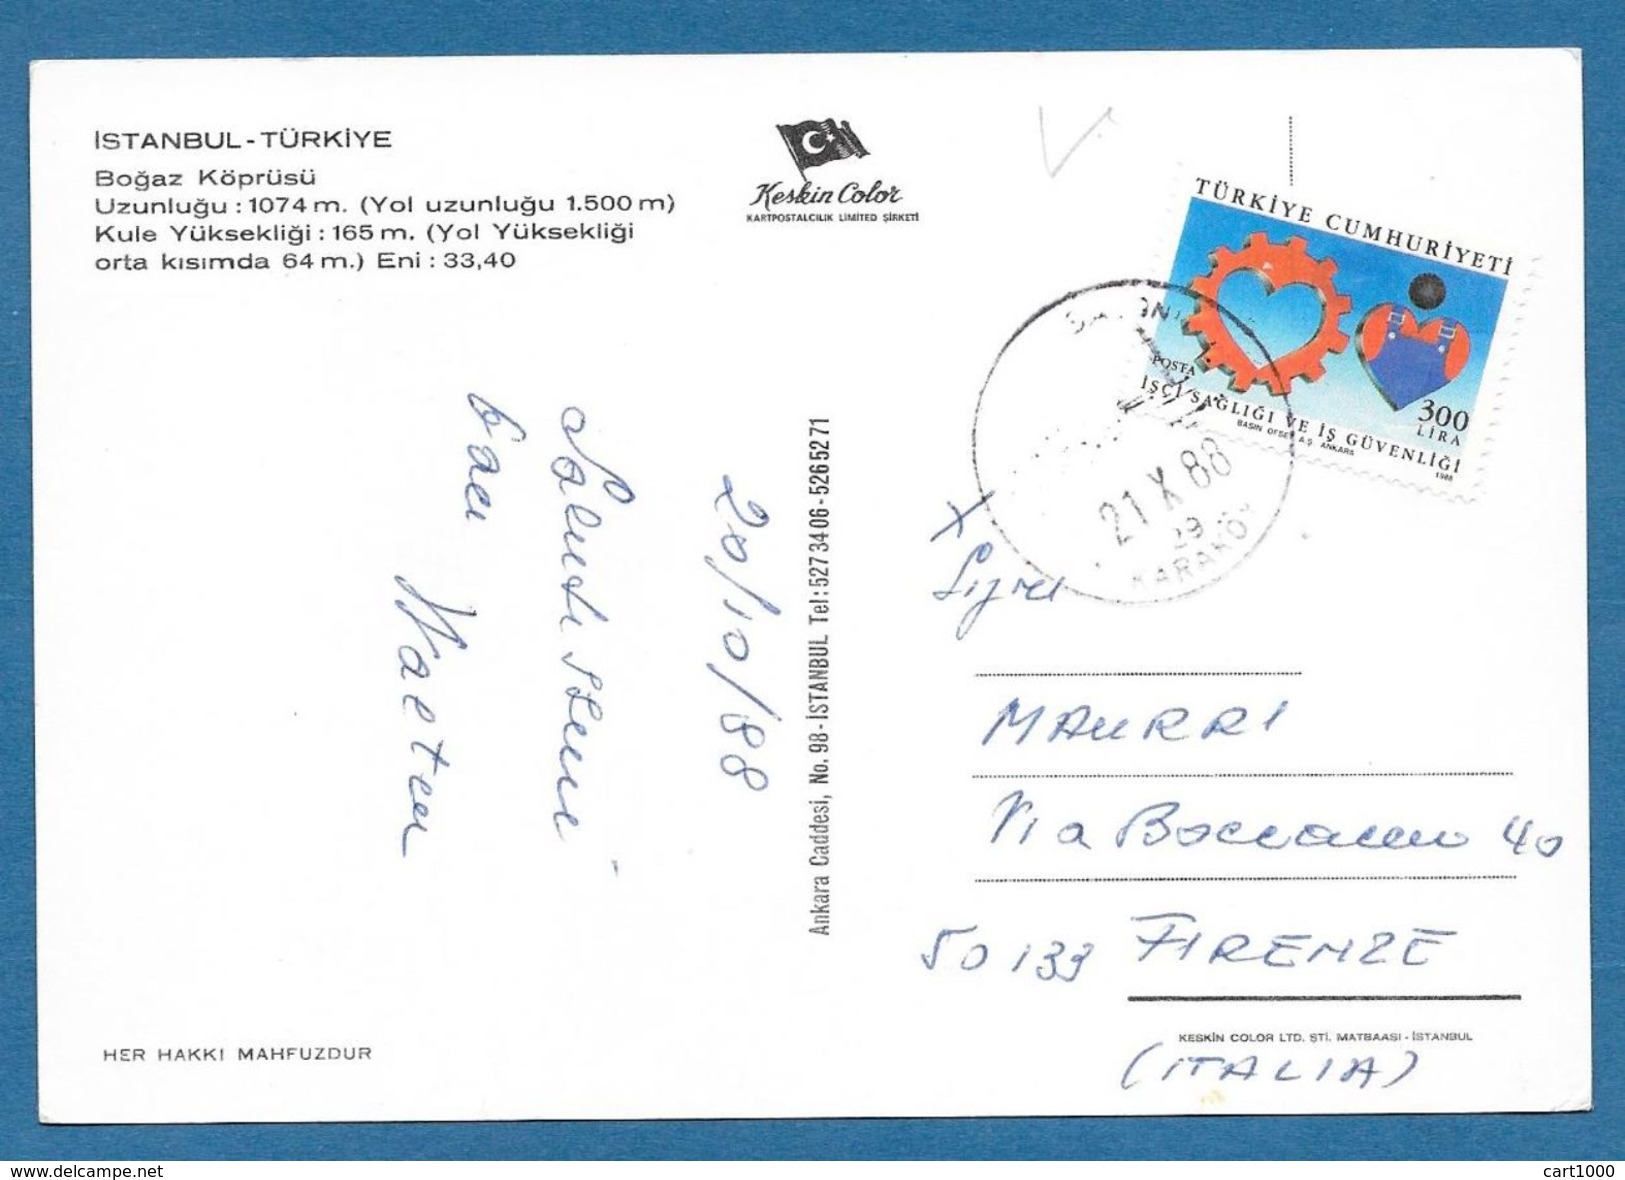 İSTANBUL - TÜRKİYE
Boğaz Köprüsü
Uzunluğu : 1074 m. (Yol uzunluğu 1.500 m)
Kule Yüksekliği : 165 m. (Yol Yüksekliği
orta kısımda 64 m.) Eni : 33,40
Keskin Color
KARTPOSTALCILIK LIMITED ŞİRKETİ
TÜRKİYE CUMHURİYETİ
POSTA
300
LİRA
İŞÇİ SAĞLIĞI VE İŞ GÜVENLİĞİ
BASIN OFSET A.Ş. ANKARA
1988
21 X 88
KARAKÖY
20/10/88
Saluti
baci
Walter
Ankara Caddesi, No. 98 - İSTANBUL Tel: 527 34 06 - 526 52 71
X
MAURRI
Via Boccaccio 40
50133 FIRENZE
KESKİN COLOR LTD. ŞTİ. MATBAASI - İSTANBUL
(ITALIA)
HER HAKKI MAHFUZDUR
www.delcampe.net
cart1000